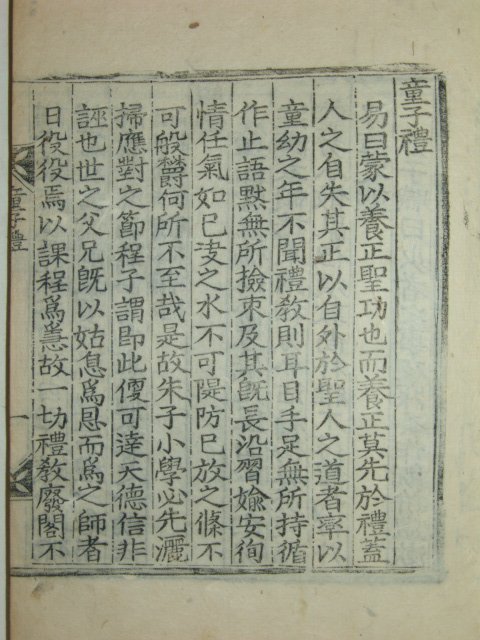 童子禮
易曰蒙以養正聖功也而養正莫先於禮蓋
人之自失其正以自外於聖人之道者率以
童幼之年不聞禮敎則耳目手足無所持循
作止語默無所撿束及其旣長沿習婾安徇
情任氣如已决之水不可隄防已放之條不
可殷欝何所不至哉是故朱子小學必先灑
掃應對之節程子謂卽此便可達天德信非
誣也世之父兄旣以姑息爲恩而爲之師者
日役役焉以課程爲急故一切禮敎廢閣不
童子禮
一